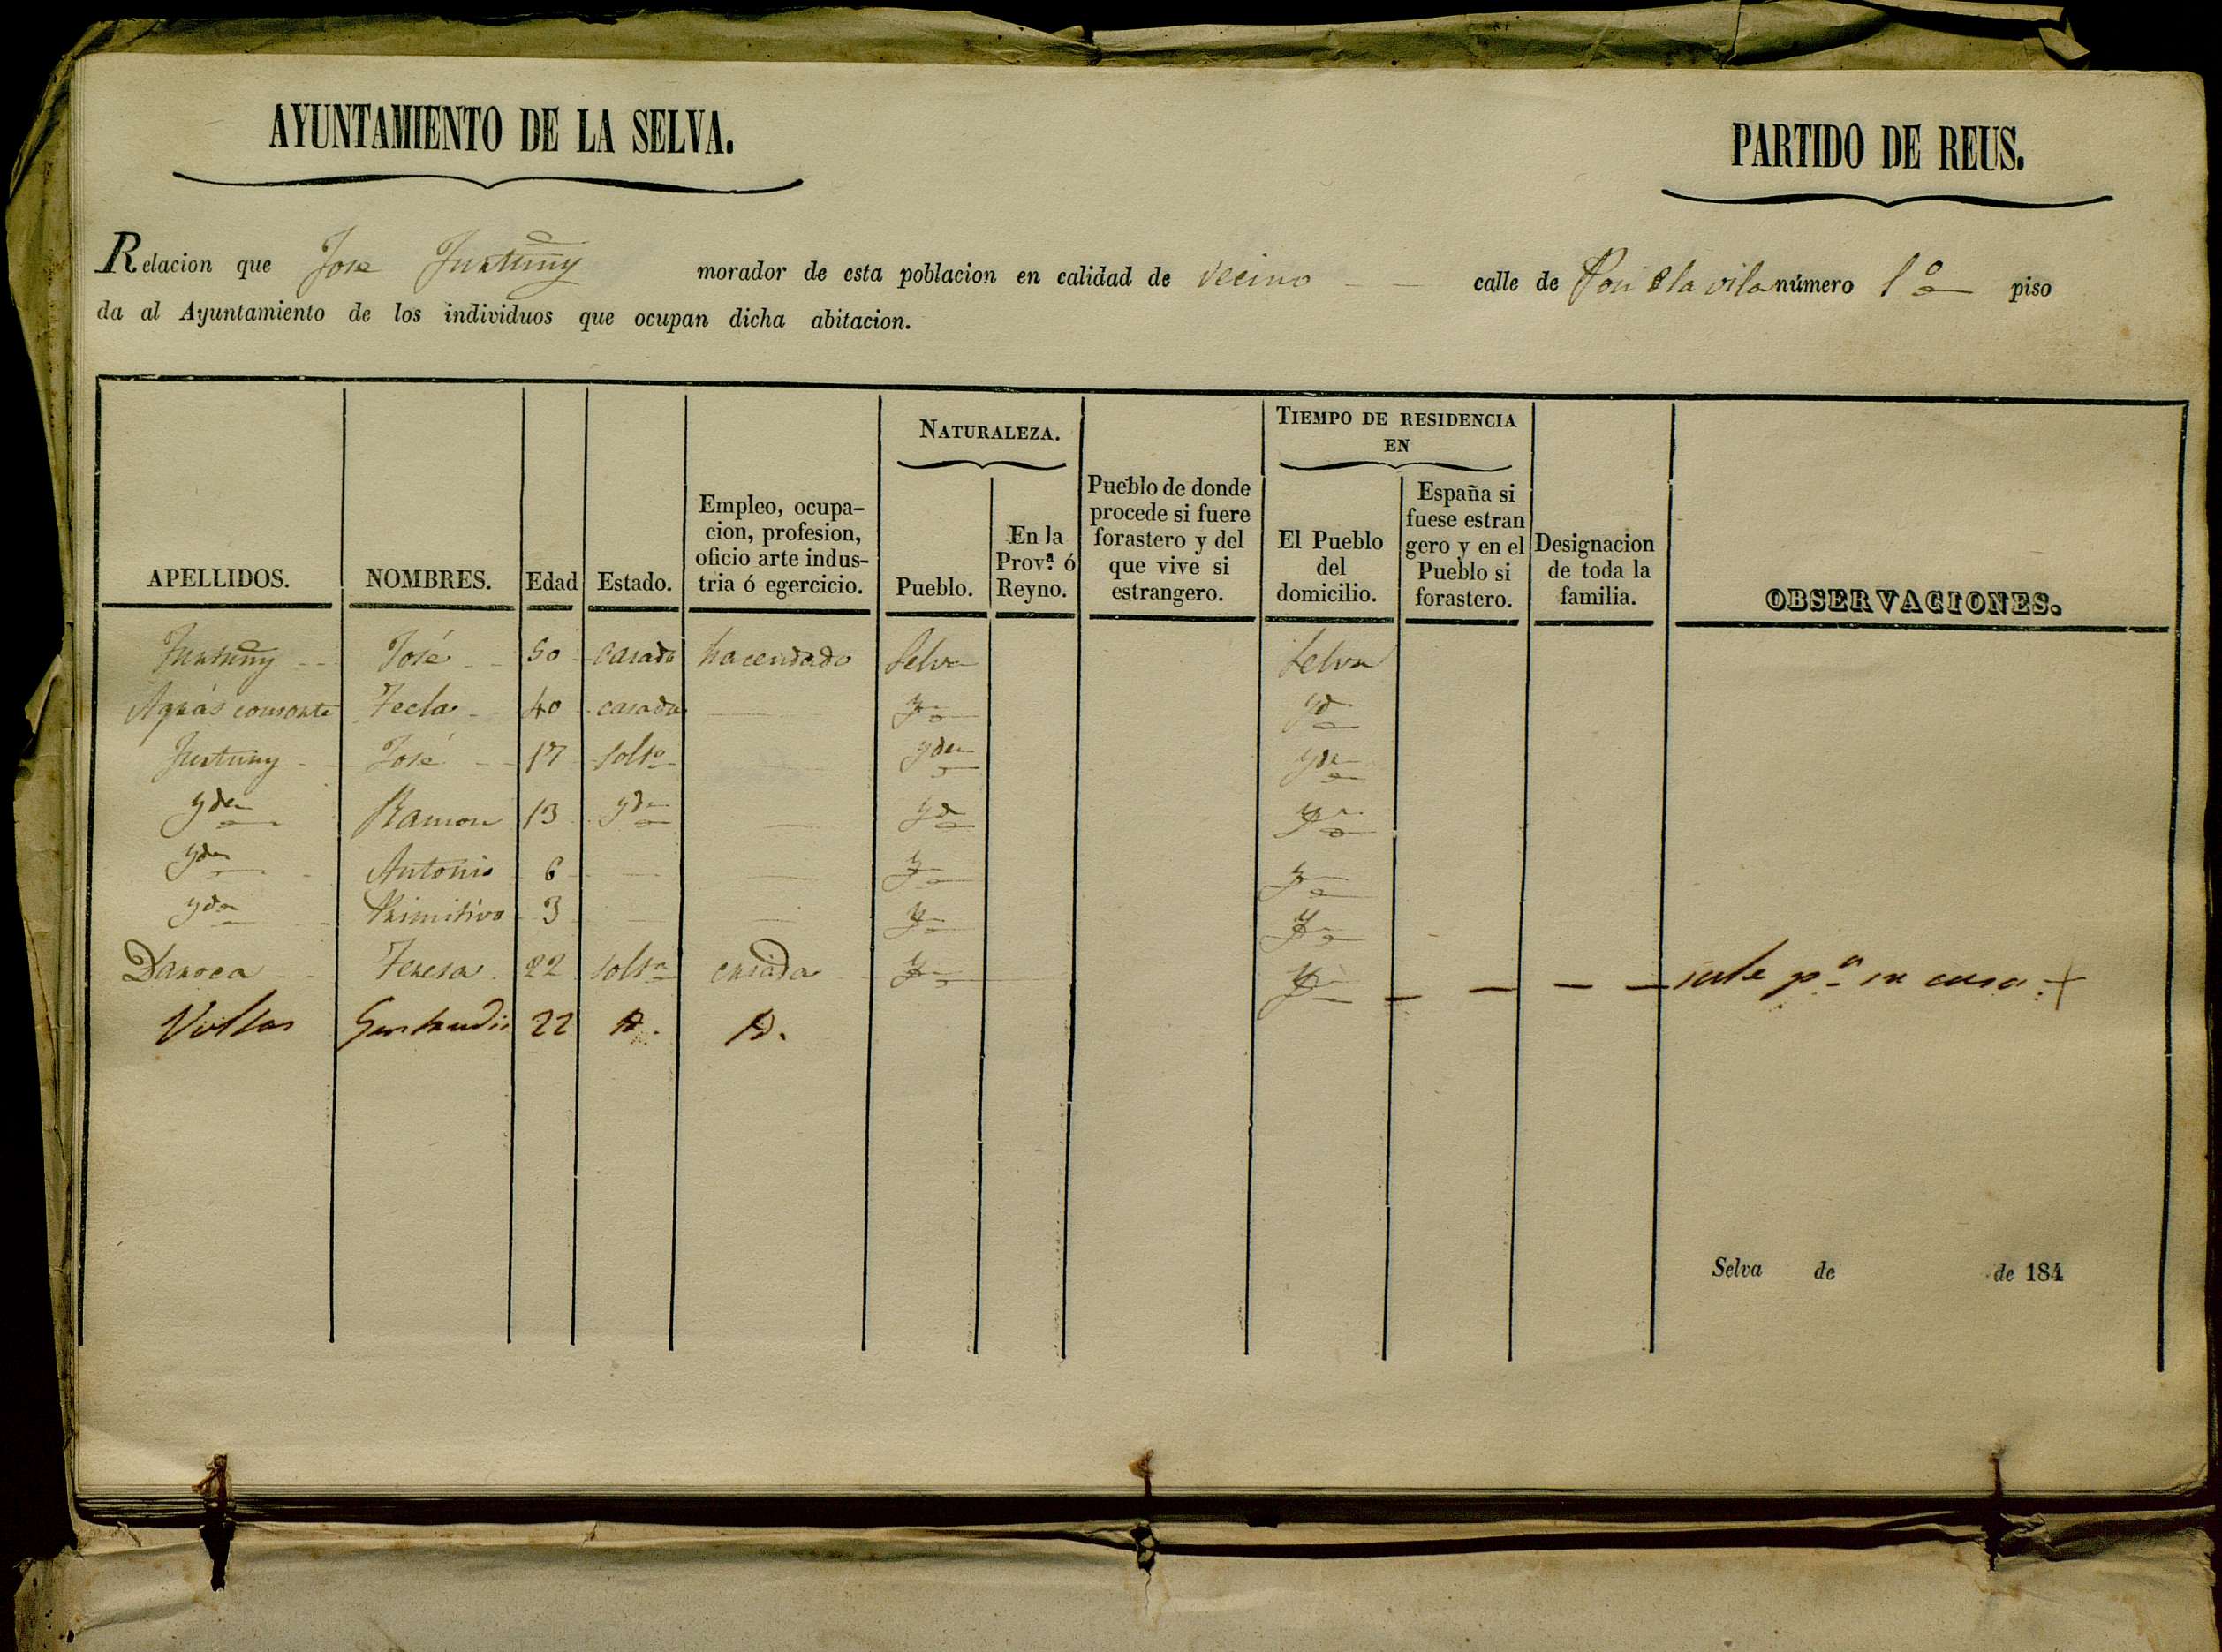 AYUNTAMIENTO DE LA SELVA. PARTIDO DE REUS.
Relacion que Jose Fortuny morador de esta poblacion en calidad de vecino calle de número 1º piso
da al Ayuntamiento de los individuos que ocupan dicha abitacion.
NATURALEZA. TIEMPO DE RESIDENCIA EN
APELLIDOS. NOMBRES. Edad Estado. Empleo, ocupa-cion, profesion, oficio arte indus-tria ó egercicio. Pueblo. En la Prov.ª ó Reyno. Pueblo de donde procede si fuere forastero y del que vive si estrangero. El Pueblo del domicilio. España si fuese estran gero y en el Pueblo si forastero. Designacion de toda la familia. OBSERVACIONES.
Fortuny José 50 casado hacendado Selva Selva
consorte Tecla 40 casada yd yd
Fortuny José 17 solto yden yden
yden Ramon 13 yden yd yd
yden Antonio 6 yd yd
yden Primitivo 3 yd yd
Daroca Teresa 22 solta criada yd yd sale pª su casa +
Voltas Gertrudis 22 yd. yd.
Selva de de 184